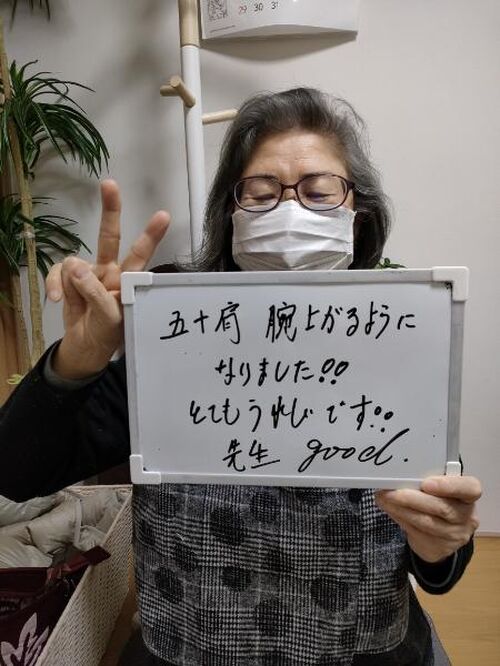 29 30 31
五十肩 腕上がるように
なりました!!
とてもうれしいです!!
先生 good.